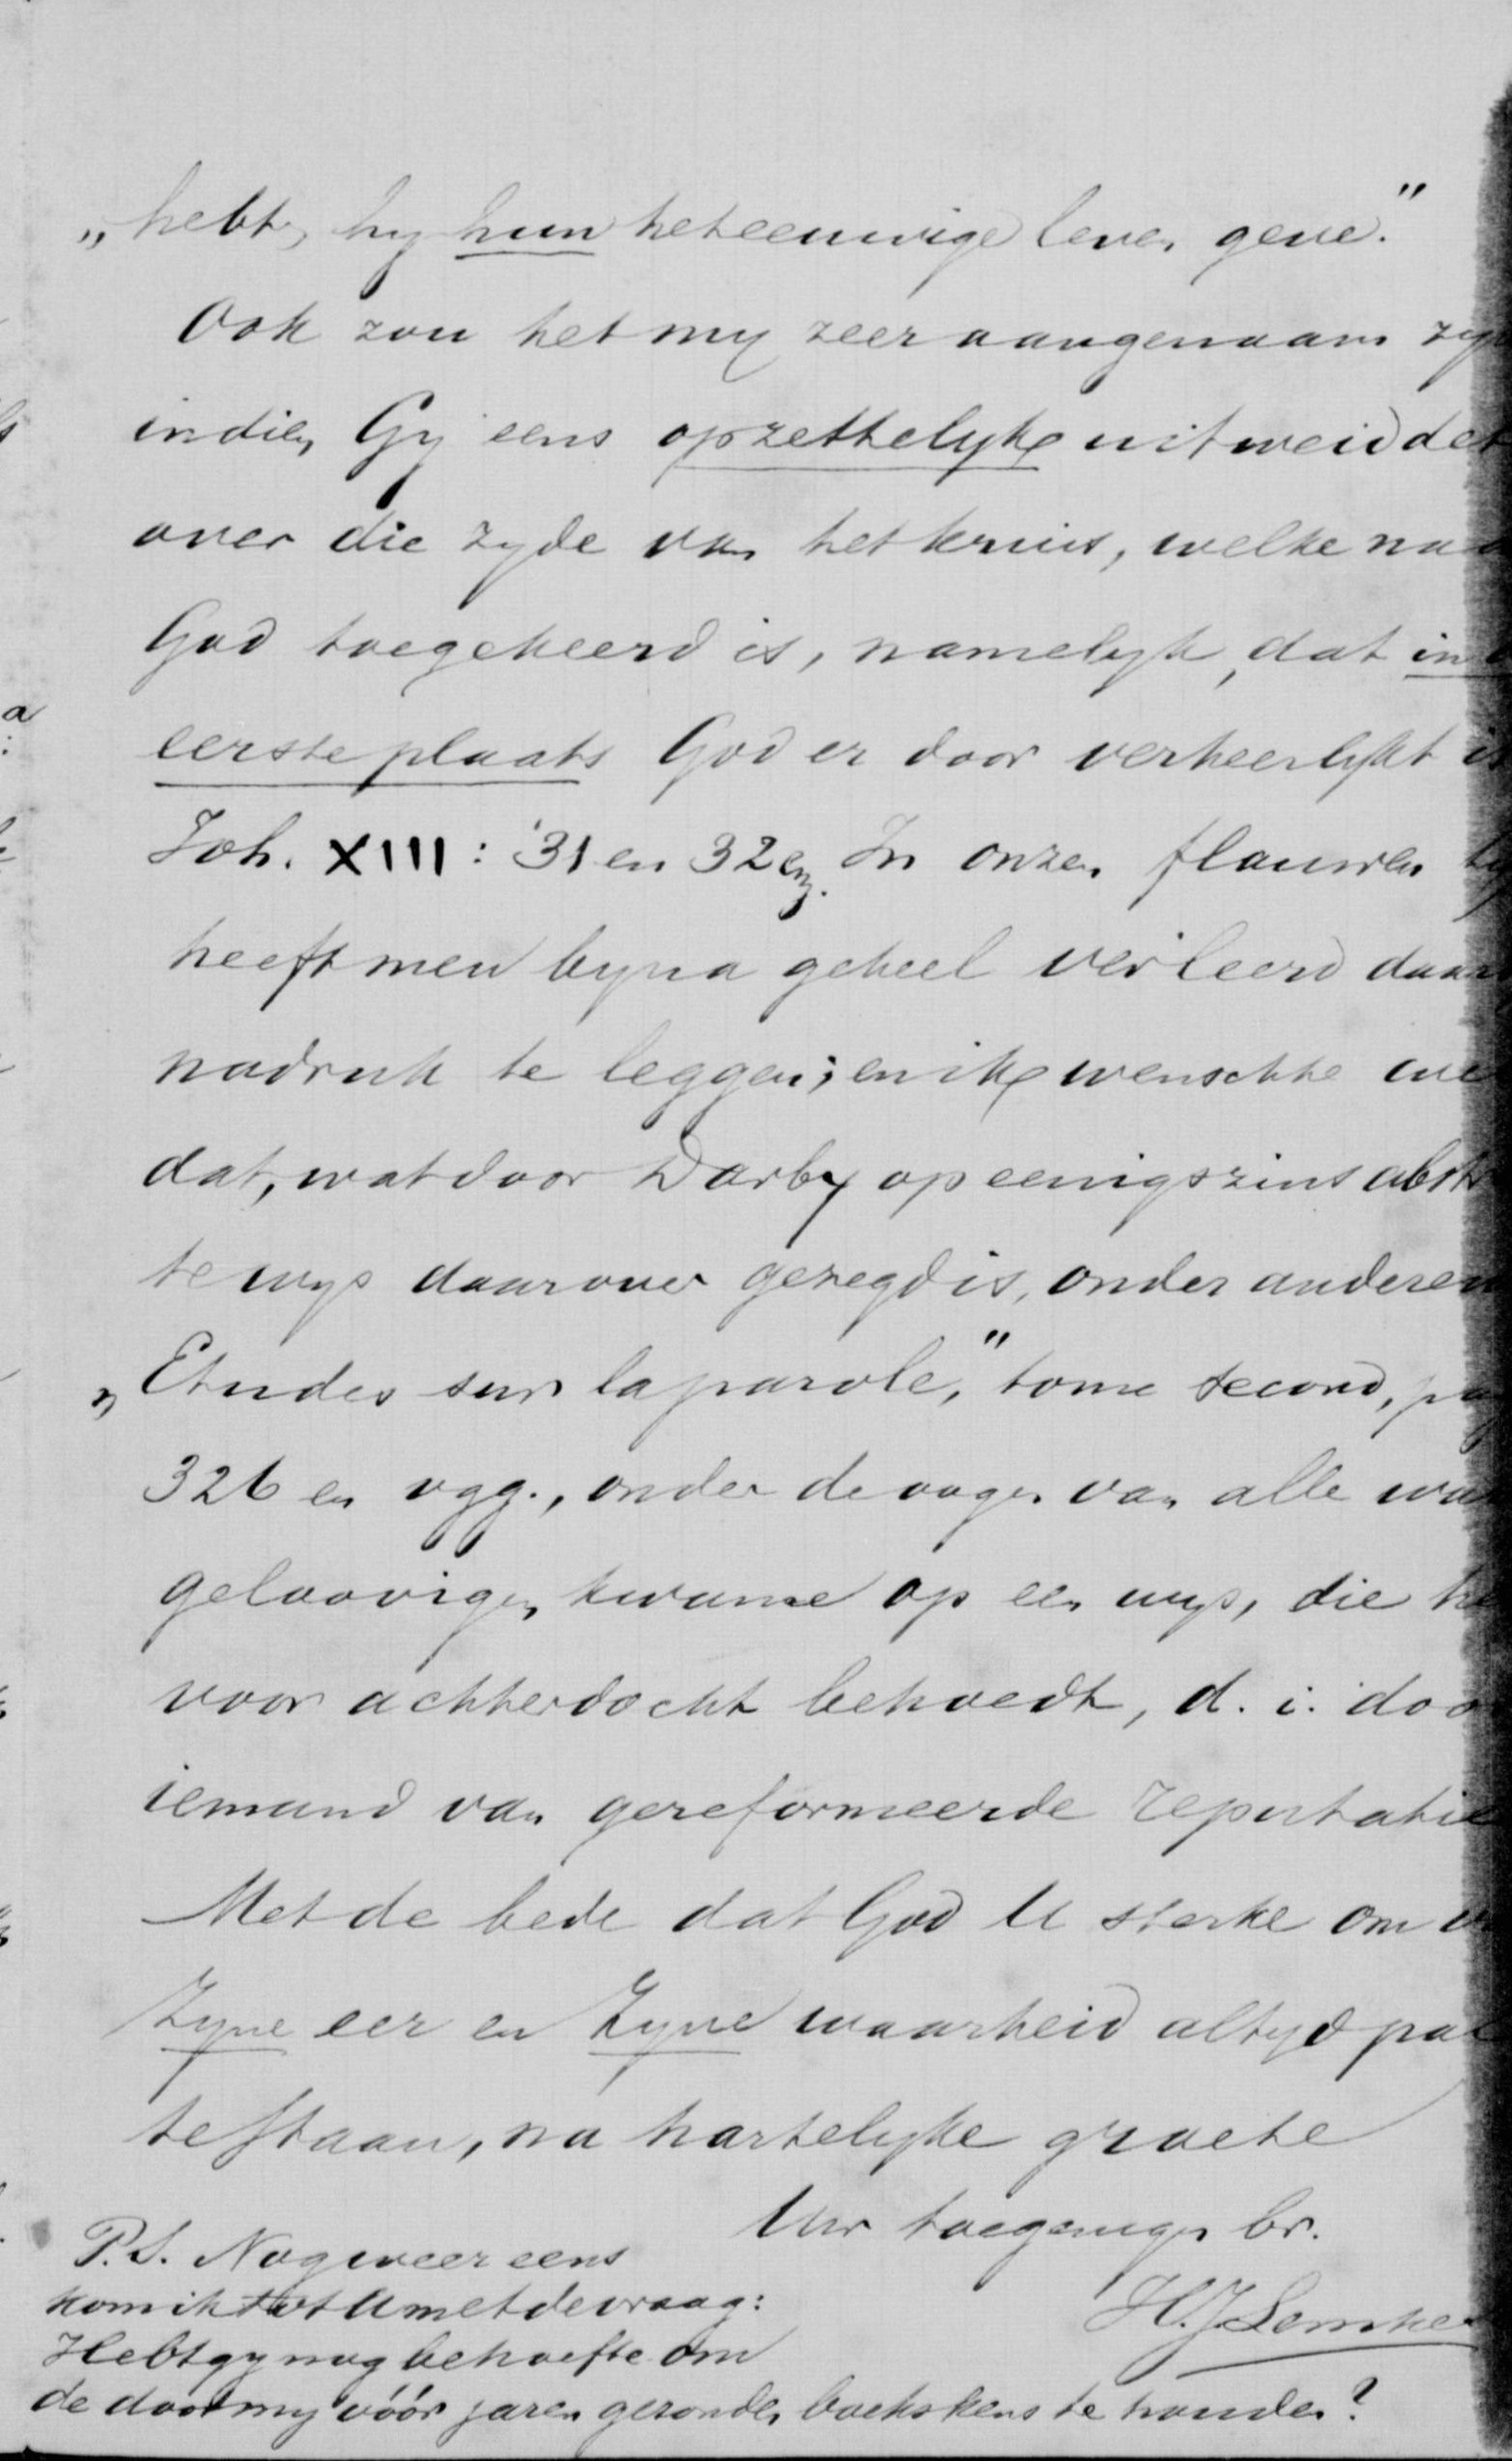 „hebt, hy hun het eeuwige leven geve."
Ook zou het my zeer aangenaam zyn
indien Gy eens opzettelyk uitweiddet
over die zyde van het kruis, welke naar
God toegekeerd is, namelyk, dat in
eerste plaats God er door verheerlykt is
Joh. XIII: 31 en 32 enz. In onzen flauwen ty
heeft men byna geheel verleerd daar
nadruk te leggen; en ik wenschte
dat, wat door Darby op eenigszins abstr
te wys daarover gezegd is, onder anderen
„Etudes sur la parole," tome second, pag
326 en vgg., onder de oogen van alle
geloovigen kwame op een wys, die
voor achterdocht behoedt, d. i. door
iemand van gereformeerde reputatie
Met de bede dat God U sterke om
Zyne eer en Zyne waarheid altyd pal
te staan, na hartelyke groete
Uw toegenegen br.
H. J. Lemke
P.S. Nog weer eens
kom ik tot U met de vraag:
Hebt gy nog behoefte om
de door my vóór jaren gezonden boekskens te houden?